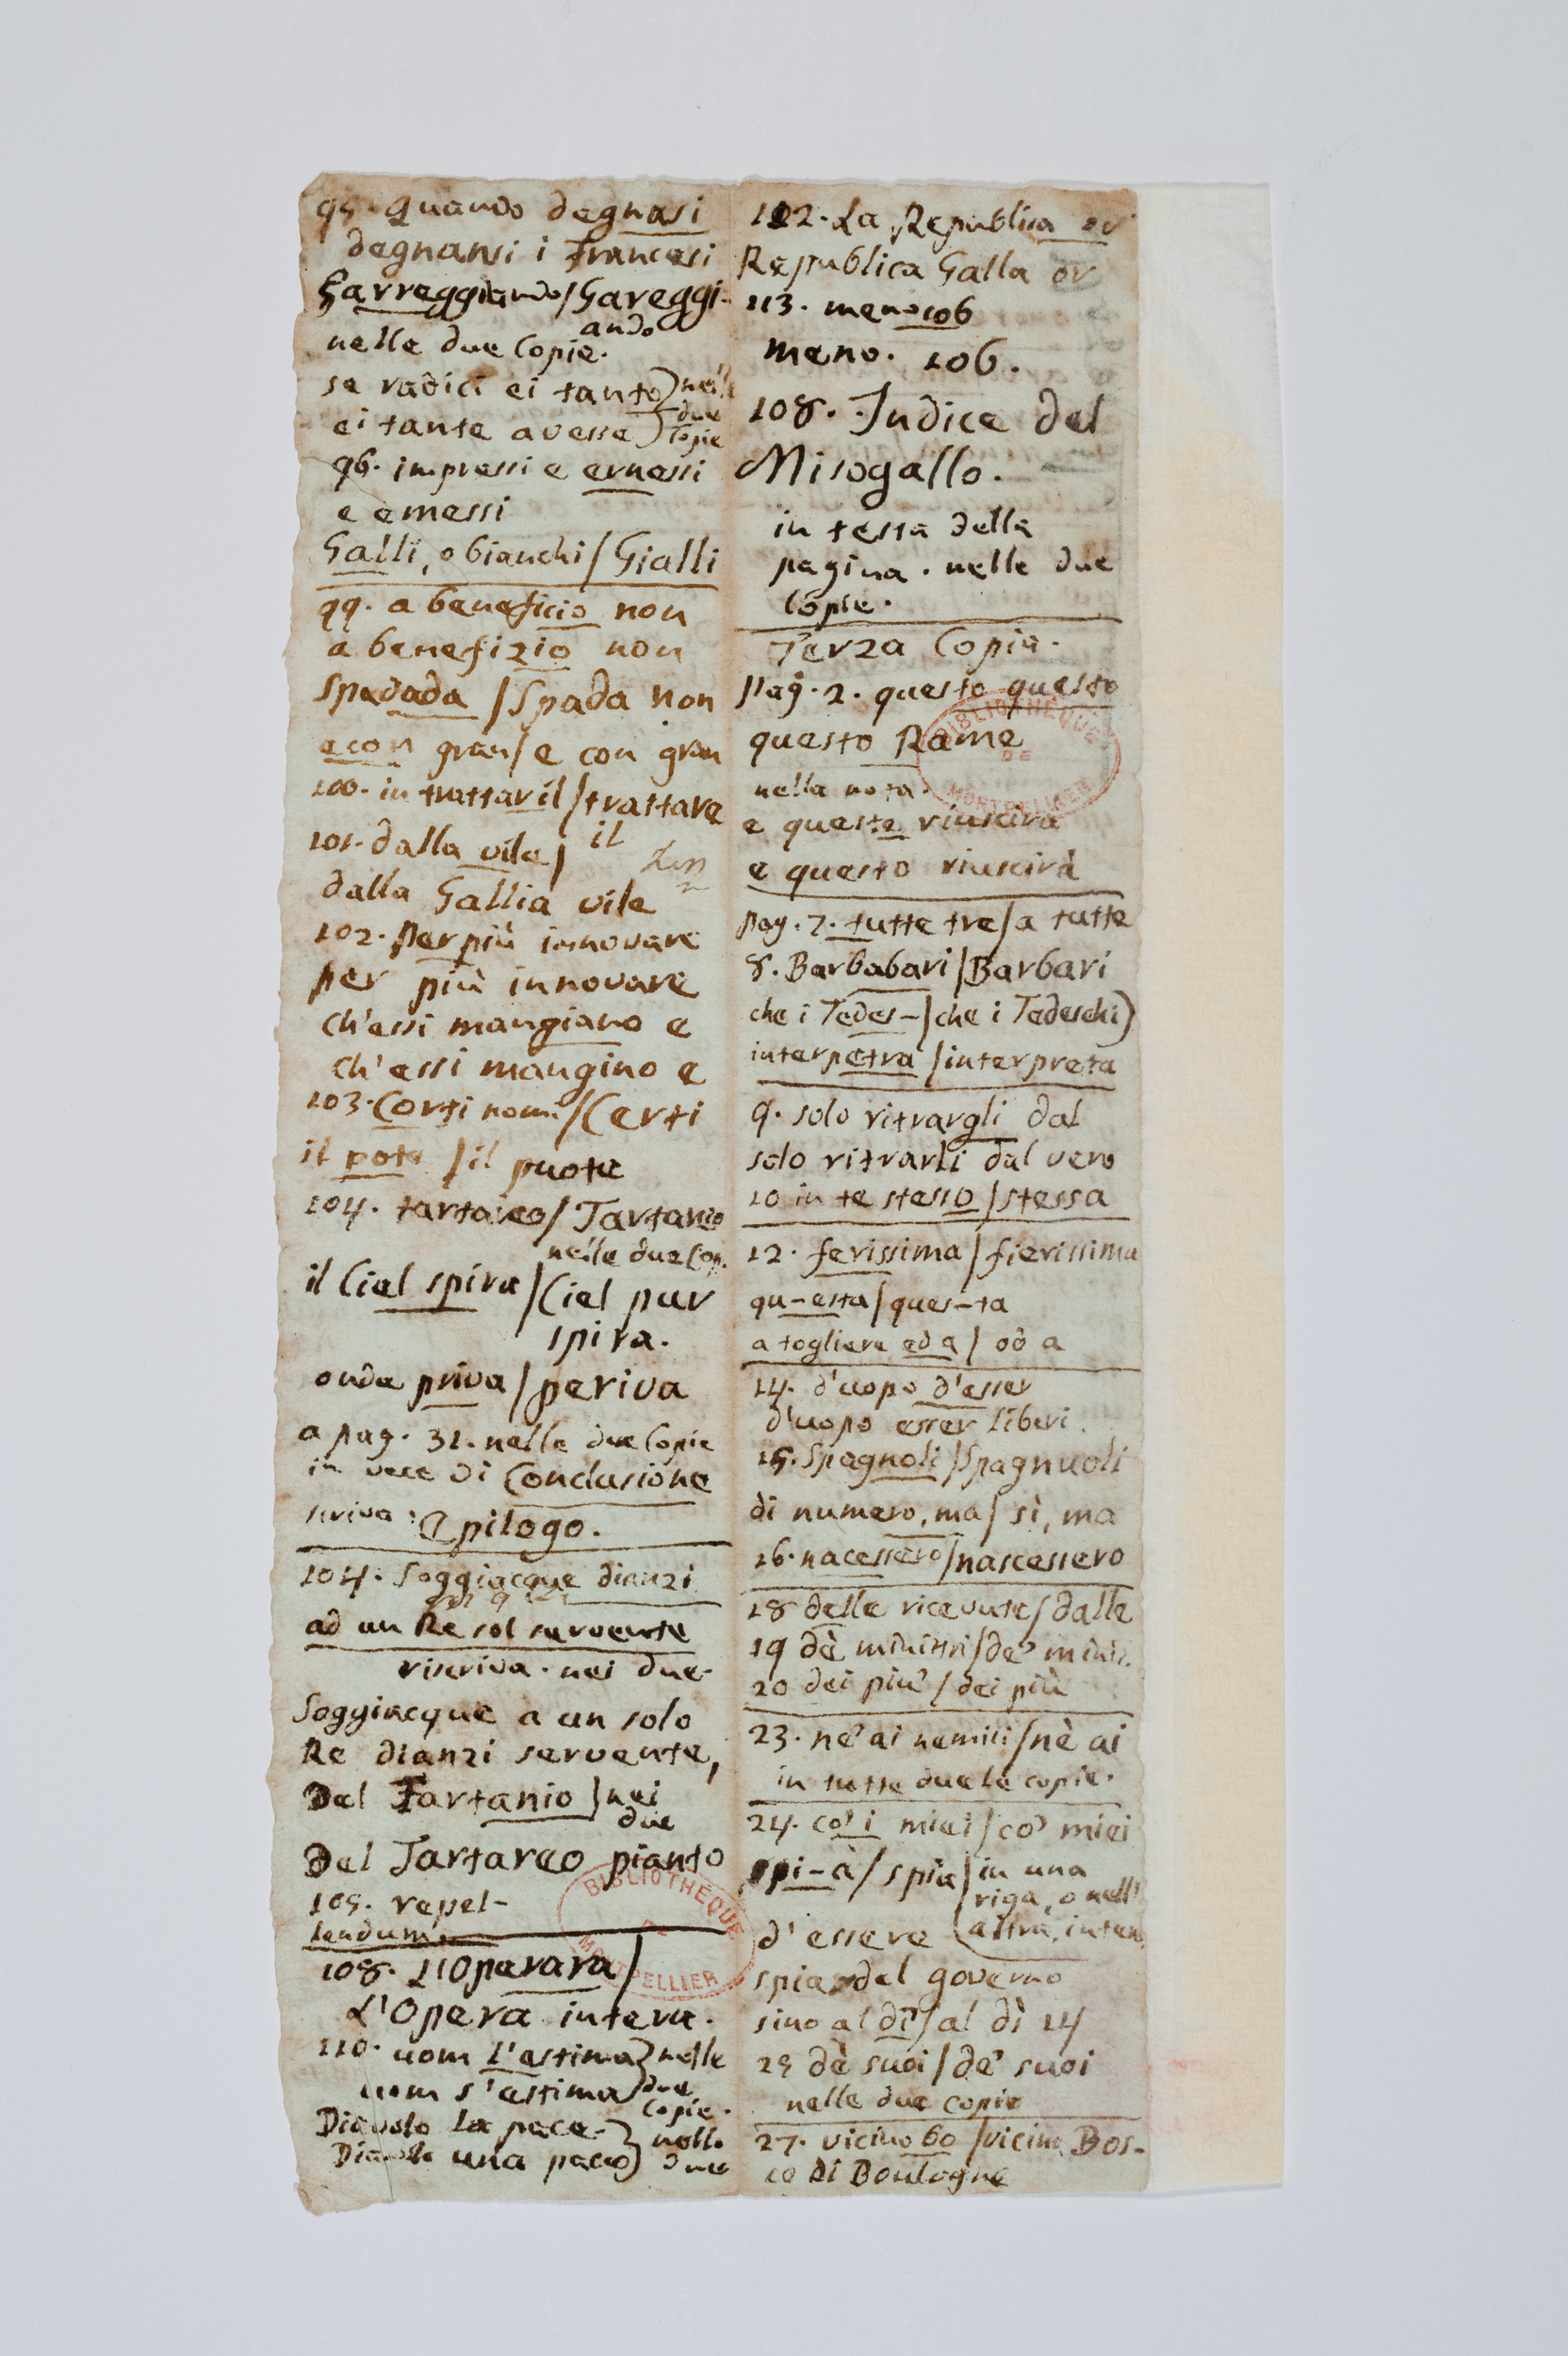 95. quando degnasi
degnansi i francesi
Garreggiando / Gareggi-
ando
nelle due Copie.
se radici ei tanto) nell
ei tante avesse) due Copie
96. impressi e ernessi
e emessi
Galli, o bianchi / Gialli
99. a beneficio non
a benefizio non
Spadada / Spada non
econ gran / e con gran
100. in trattar il / trattare
il
101. dalla vile /
dalla Gallia vile
102. Perpiù innovare
per più innovare
ch'essi mangiano e
ch'essi mangino e
103. Corti nomi / Certi
il pote / il puote
104. / Tartareo
nelle due Cop.
il Ciel spira / Ciel pur
spira.
onde priva / periva
a pag. 31. nelle due Copie
in vece di Conclusione
scriva: Epilogo.
104. Soggiacque dianzi
ad un Re sol servente
riscriva. nei due.
Soggiacque a un solo
Re dianzi servente,
Del Tartanio / nei
due
Del Tartareo pianto
105. repel-
lendum.
108. L'Operara /
L'Opera intera.
110. uom l'estima } nelle
uom s'estima } due
Copie.
Diavolo la pace } nelle
Diavolo una pace } due
112. La Republica or
Republica Galla or
113. meno106
meno. 106.
108. Indice del
Misogallo.
in testa della
pagina. nelle due
Copie.
Terza Copia.
pag. 2. questo questo
questo Rame
nella nota.
e queste riuscirà
e questo riuscirà
pag. 7. tutte tre / a tutte
8. Barbabari / Barbari
che i Tedes- / che i Tedeschi)
interpetra / interpreta
9. solo ritrargli dal
solo ritrarli dal vero
10 in te stesso / stessa
12. ferissima / fierissima
qu-esta / ques-ta
a togliere ed a / od a
14. d'uopo d'esser
d'uopo esser liberi.
15. Spagnoli / Spagnuoli
di numero, ma / sì, ma
16. nacessero / nascessero
18 delle ricevute / dalle
19 dè ministri / de' minis.
20 dei piu' / dei più
23. ne' ai nemici / nè ai
in tutte due le copie.
24. co' i miei / co' miei
spi-a / spia / in una
riga, o nell'
d'essere altra, intera
spia del governo
sino al dì / al dì 14
25 dè suoi / de' suoi
nelle due copie
27. vicino bo / vicino Bos-
co di Boulogne
BIBLIOTHEQUE
DE
MONTPELLIER
BIBLIOTHEQUE
DE
MONTPELLIER